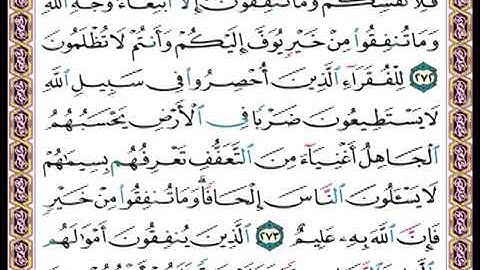 فَلِأَنفُسِكُمْ وَمَا تُنفِقُونَ إِلَّا ٱبْتِغَآءَ وَجْهِ ٱللَّهِ
وَمَا تُنفِقُوا۟ مِنْ خَيْرٍ يُوَفَّ إِلَيْكُمْ وَأَنتُمْ لَا تُظْلَمُونَ
٢٧٢ لِلْفُقَرَآءِ ٱلَّذِينَ أُحْصِرُوا۟ فِى سَبِيلِ ٱللَّهِ
لَا يَسْتَطِيعُونَ ضَرْبًا فِى ٱلْأَرْضِ يَحْسَبُهُمُ
ٱلْجَاهِلُ أَغْنِيَآءَ مِنَ ٱلتَّعَفُّفِ تَعْرِفُهُم بِسِيمَٰهُمْ
لَا يَسْـَٔلُونَ ٱلنَّاسَ إِلْحَافًا ۗ وَمَا تُنفِقُوا۟ مِنْ خَيْرٍ
فَإِنَّ ٱللَّهَ بِهِۦ عَلِيمٌ ٢٧٣ ٱلَّذِينَ يُنفِقُونَ أَمْوَٰلَهُم